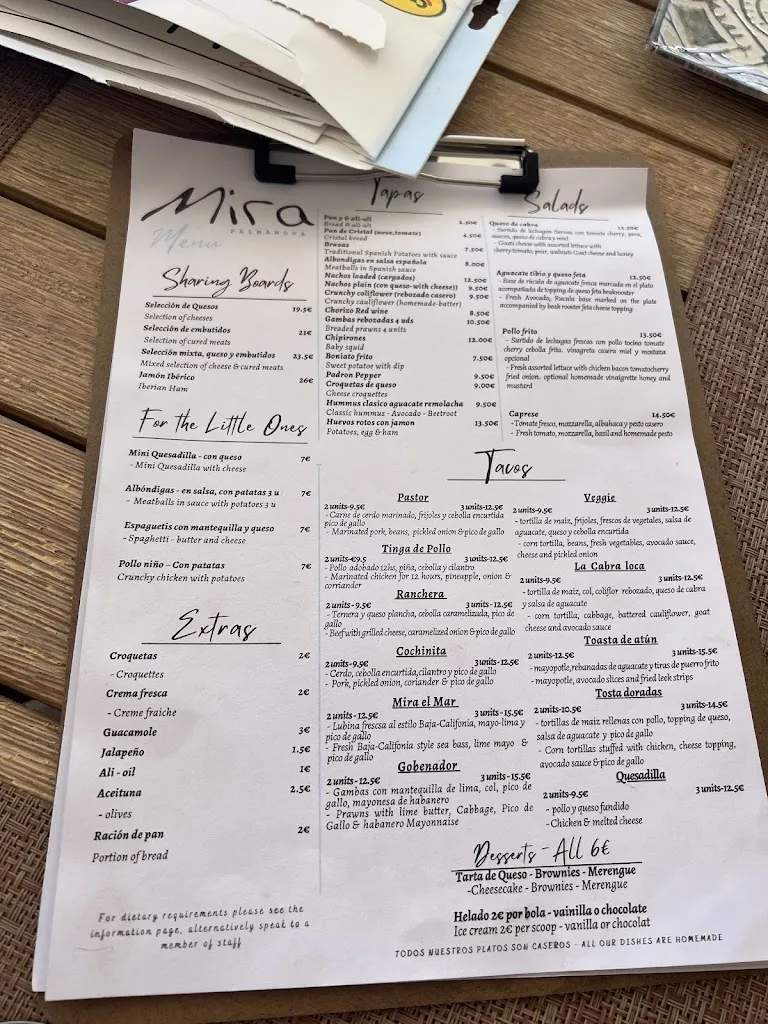 Mira
PALMANOVA
Menu
Sharing Boards
Selección de Quesos 19.5€
Selection of cheeses
Selección de embutidos 21€
Selection of cured meats
Selección mixta, queso y embutidos 23.5€
Mixed selection of cheese & cured meats
Jamón Ibérico 26€
Iberian Ham
For the Little Ones
Mini Quesadilla - con queso 7€
- Mini Quesadilla with cheese
Albóndigas - en salsa, con patatas 3 u 7€
- Meatballs in sauce with potatoes 3 u
Espaguetis con mantequilla y queso 7€
- Spaghetti - butter and cheese
Pollo niño – Con patatas 7€
Crunchy chicken with potatoes
Extras
Croquetas 2€
- Croquettes
Crema fresca 2€
- Creme fraiche
Guacamole 3€
Jalapeño 1.5€
Ali - oil 1€
Aceituna 2.5€
- olives
Ración de pan 2€
Portion of bread
For dietary requirements please see the
information page, alternatively speak to a
member of staff
Tapas
Pan y ali-oli 2.50€
Bread & ali-oli
Pan de Cristal (nove,tomate) 4.50€
Cristal bread
Bravas 7.50€
Traditional Spanish Potatoes with sauce
Albondigas en salsa española 8.00€
Meatballs in Spanish sauce
Nachos loaded (cargados) 12.50€
Nachos plain (con queso-with cheese)) 9.50€
Crunchy coliflower (rebozado casero) 9.50€
Crunchy cauliflower (homemade-batter)
Chorizo Red wine 8.50€
Gambas rebozadas 4 uds 10.50€
Breaded prawns 4 units
Chipirones 12.00€
Baby squid
Boniato frito 7.50€
Sweet potatoe with dip
Padron Pepper 9.50€
Croquetas de queso 9.00€
Cheese croquettes
Hummus clasico aguacate remolacha 9.50€
Classic hummus - Avocado - Beetroot
Huevos rotos con jamon 13.50€
Potatoes, egg & ham
Salads
Queso de cabra 13.00€
- Surtido de lechugas tiernas con tomate cherry, pera,
nueces, queso de cabra y miel
- Goats cheese with assorted lettuce with
cherry tomato, pear, walnuts Goat cheese and honey
Aguacate tibio y queso feta 13.50€
- Base de rúcula de aguacate fresca marcada en el plato
acompañada de topping de queso feta beakrooter
- Fresh Avocado, Rucula base marked on the plate
accompanied by beak rooster feta cheese topping
Pollo frito 13.50€
- Surtido de lechugas frescas con pollo tocino tomate
cherry cebolla frita. vinagreta casera miel y mostaza
opcional
- Fresh assorted lettuce with chicken bacon tomatocherry
fried onion. optional homemade vinaigrette honey and
mustard
Caprese 14.50€
-Tomate fresco, mozzarella, albahaca y pesto casero
- Fresh tomato, mozzarella, basil and homemade pesto
Tacos
Pastor
2 units-9.5€ 3 units-12.5€
- Carne de cerdo marinado, frijoles y cebolla encurtida
pico de gallo
- Marinated pork, beans, pickled onion & pico de gallo
Tinga de Pollo
2 units-€9.5 3 units-12.5€
- Pollo adobado 12hs, piña, cebolla y cilantro
- Marinated chicken for 12 hours, pineapple, onion &
corriander
Ranchera
2 units - 9.5€ 3 units - 12.5€
- Ternera y queso plancha, cebolla caramelizada, pico de
gallo
- Beef with grilled cheese, caramelized onion & pico de gallo
Cochinita
2 units-9.5€ 3 units- 12.5€
- Cerdo, cebolla encurtida,cilantro y pico de gallo
- Pork, pickled onion, coriander & pico de gallo
Mira el Mar
2 units - 12.5€ 3 units - 15.5€
- Lubina frescsa al estilo Baja-Califonia, mayo-lima y
pico de gallo
- Fresh Baja-Califonia style sea bass, lime mayo &
pico de gallo
Gobenador
2 units - 12.5€ 3 units-15.5€
- Gambas con mantequilla de lima, col, pico de
gallo, mayonesa de habanero
- Prawns with lime butter, Cabbage, Pico de
Gallo & habanero Mayonnaise
Veggie
2 units-9.5€ 3 units-12.5€
- tortilla de maíz, frijoles, frescos de vegetales, salsa de
aguacate, queso y cebolla encurtida
- corn tortilla, beans, fresh vegetables, avocado sauce,
cheese and pickled onion
La Cabra loca
2 units-9.5€ 3 units-12.5€
- tortilla de maiz, col, coliflor rebozado, queso de cabra
y salsa de aguacate
- corn tortilla, cabbage, battered cauliflower, goat
cheese and avocado sauce
Toasta de atún
2 units-12.5€ 3 units-15.5€
- mayopotle,rebanadas de aguacate y tiras de puerro frito
- mayopotle, avocado slices and fried leek strips
Tosta doradas
2 units-10.5€ 3 units-14.5€
- tortillas de maiz rellenas con pollo, topping de queso,
salsa de aguacate y pico de gallo
- Corn tortillas stuffed with chicken, cheese topping,
avocado sauce & pico de gallo
Quesadilla
2 units-9.5€ 3 units-12.5€
- pollo y queso fundido
- Chicken & melted cheese
Desserts - All 6€
Tarta de Queso - Brownies - Merengue
-Cheesecake - Brownies - Merengue
Helado 2€ por bola - vainilla o chocolate
Ice cream 2€ per scoop - vanilla or chocolat
TODOS NUESTROS PLATOS SON CASEROS - ALL OUR DISHES ARE HOMEMADE